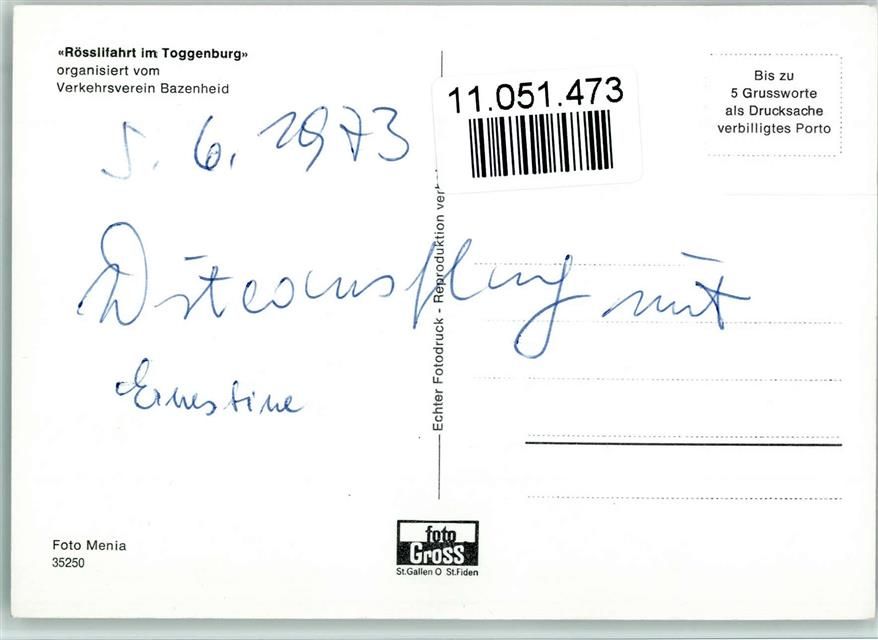 «Rösslifahrt im Toggenburg»
organisiert vom
Verkehrsverein Bazenheid
5. 6. 1973
11.051.473
Bis zu
5 Grussworte
als Drucksache
verbilligtes Porto
Echter Fotodruck - Reproduktion
mit
Ernestine
Foto Menia
35250
foto
GROSS
St.Gallen O St.Fiden